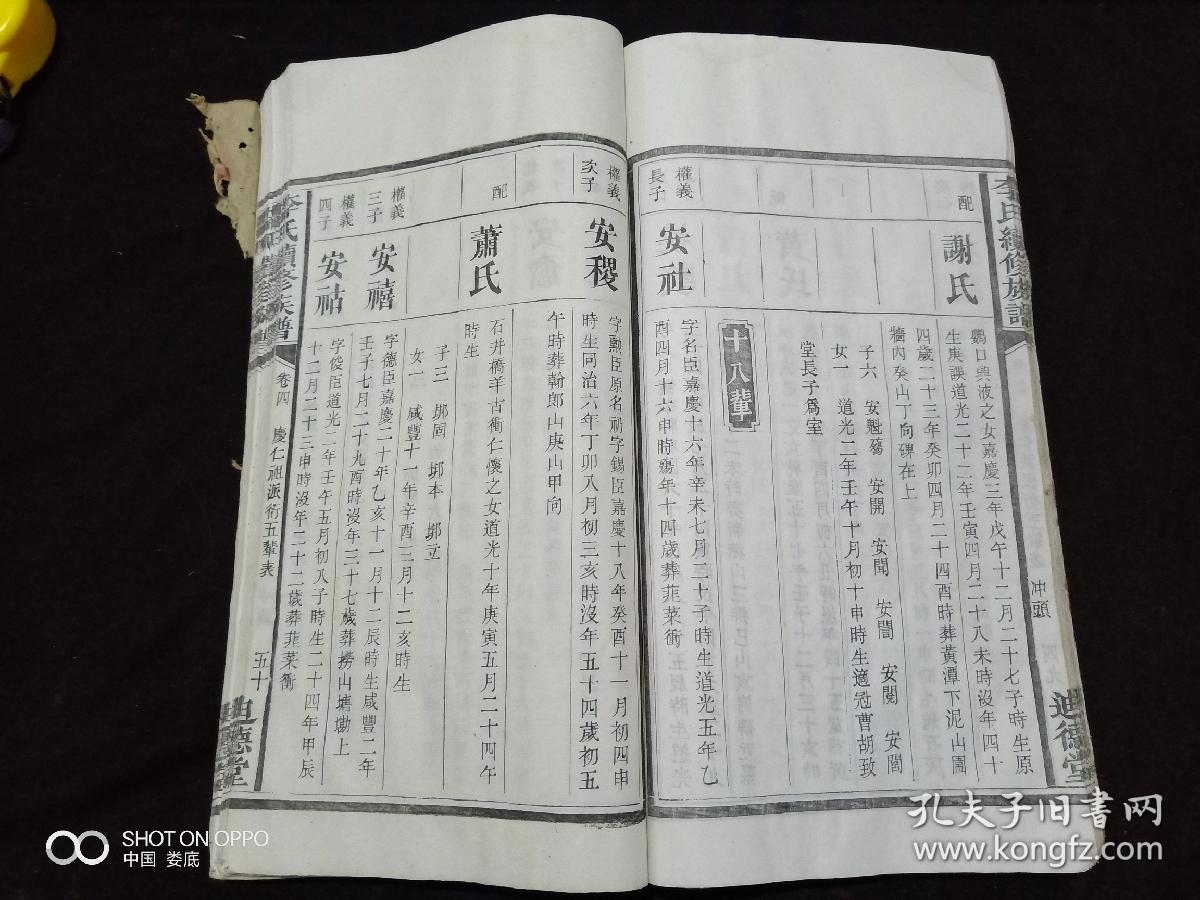 李氏續修族譜
冲頭
迪德堂
配
謝氏
鸚口興液之女嘉慶三年戊午十二月二十七子時生原
生庚誤道光二十二年壬寅四月二十八未時沒年四十
四歲二十三年癸卯四月二十四酉時葬黃潭下泥山園
牆內癸山丁向碑在上
子六 安魁殤 安開 安聞 安閭 安閱 安閣
女一 道光二年壬午十月初十申時生適冠曹胡致
堂長子爲室
十八輩
權義
長子
安社
字名臣嘉慶十六年辛未七月三十子時生道光五年乙
酉四月十六申時殤年十四歲葬菲菜衝
權義
次子
安稷
字勳臣原名福字錫臣嘉慶十八年癸酉十一月初四申
時生同治六年丁卯八月初三亥時沒年五十四歲初五
午時葬翰郎山庚山甲向
配
蕭氏
石井橋羊古衝仁懷之女道光十年庚寅五月二十四午
時生
子三 邦固 邦本 邦立
女一 咸豐十一年辛酉三月十二亥時生
權義
三子
安禧
字德臣嘉慶二十年乙亥十一月十二辰時生咸豐二年
壬子七月二十九酉時沒年三十七歲葬撈山塘坳上
權義
四子
安祜
字俊臣道光二年壬午五月初八子時生二十四年甲辰
十二月二十三申時沒年二十二歲葬菲菜衝
李氏續修族譜
卷四
慶仁祖派衍五輩表
五十
迪德堂
SHOT ON OPPO
中国 娄底
孔夫子旧书网
www.kongfz.com